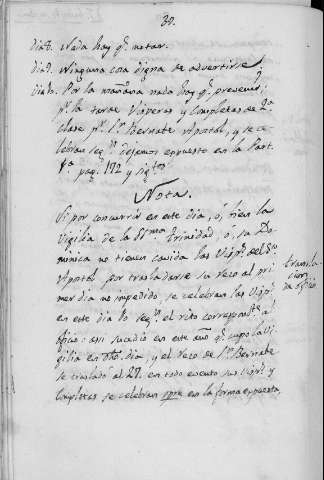 30.
dia 8. Nada hay q.e notar.
dia 9. Ninguna cosa digna de advertirse.
dia 10. Por la mañana nada hay q.e prevenir;
p.r la tarde Visperas y Completas de 2.a
clase p.r S.n Bernabe Apostol, y se ce-
lebran seg.n dejamos expuesto en la Part.
1.a pag.s 172 y sig.tes
Nota.
Si por concurrir en este dia, ó bien la
Vigilia de la SS.ma Trinidad, ó su Do-
minica no tienen cavida las Visp.s del S.to
Apostol por trasladarse su rezo al pri-
mer dia no impedido, se celebran las Visp.s
en este dia 10 seg.n el rito correspond.te al
oficio: asi sucedio en este año q.e cupo la Vi-
gilia en dho. dia, y el rezo de S.n Bernabe
se trasladó al 27. en todo evento sus Visp.s y
Completas se celebran spre en la forma expuesta.
transla-
cion
de oficio